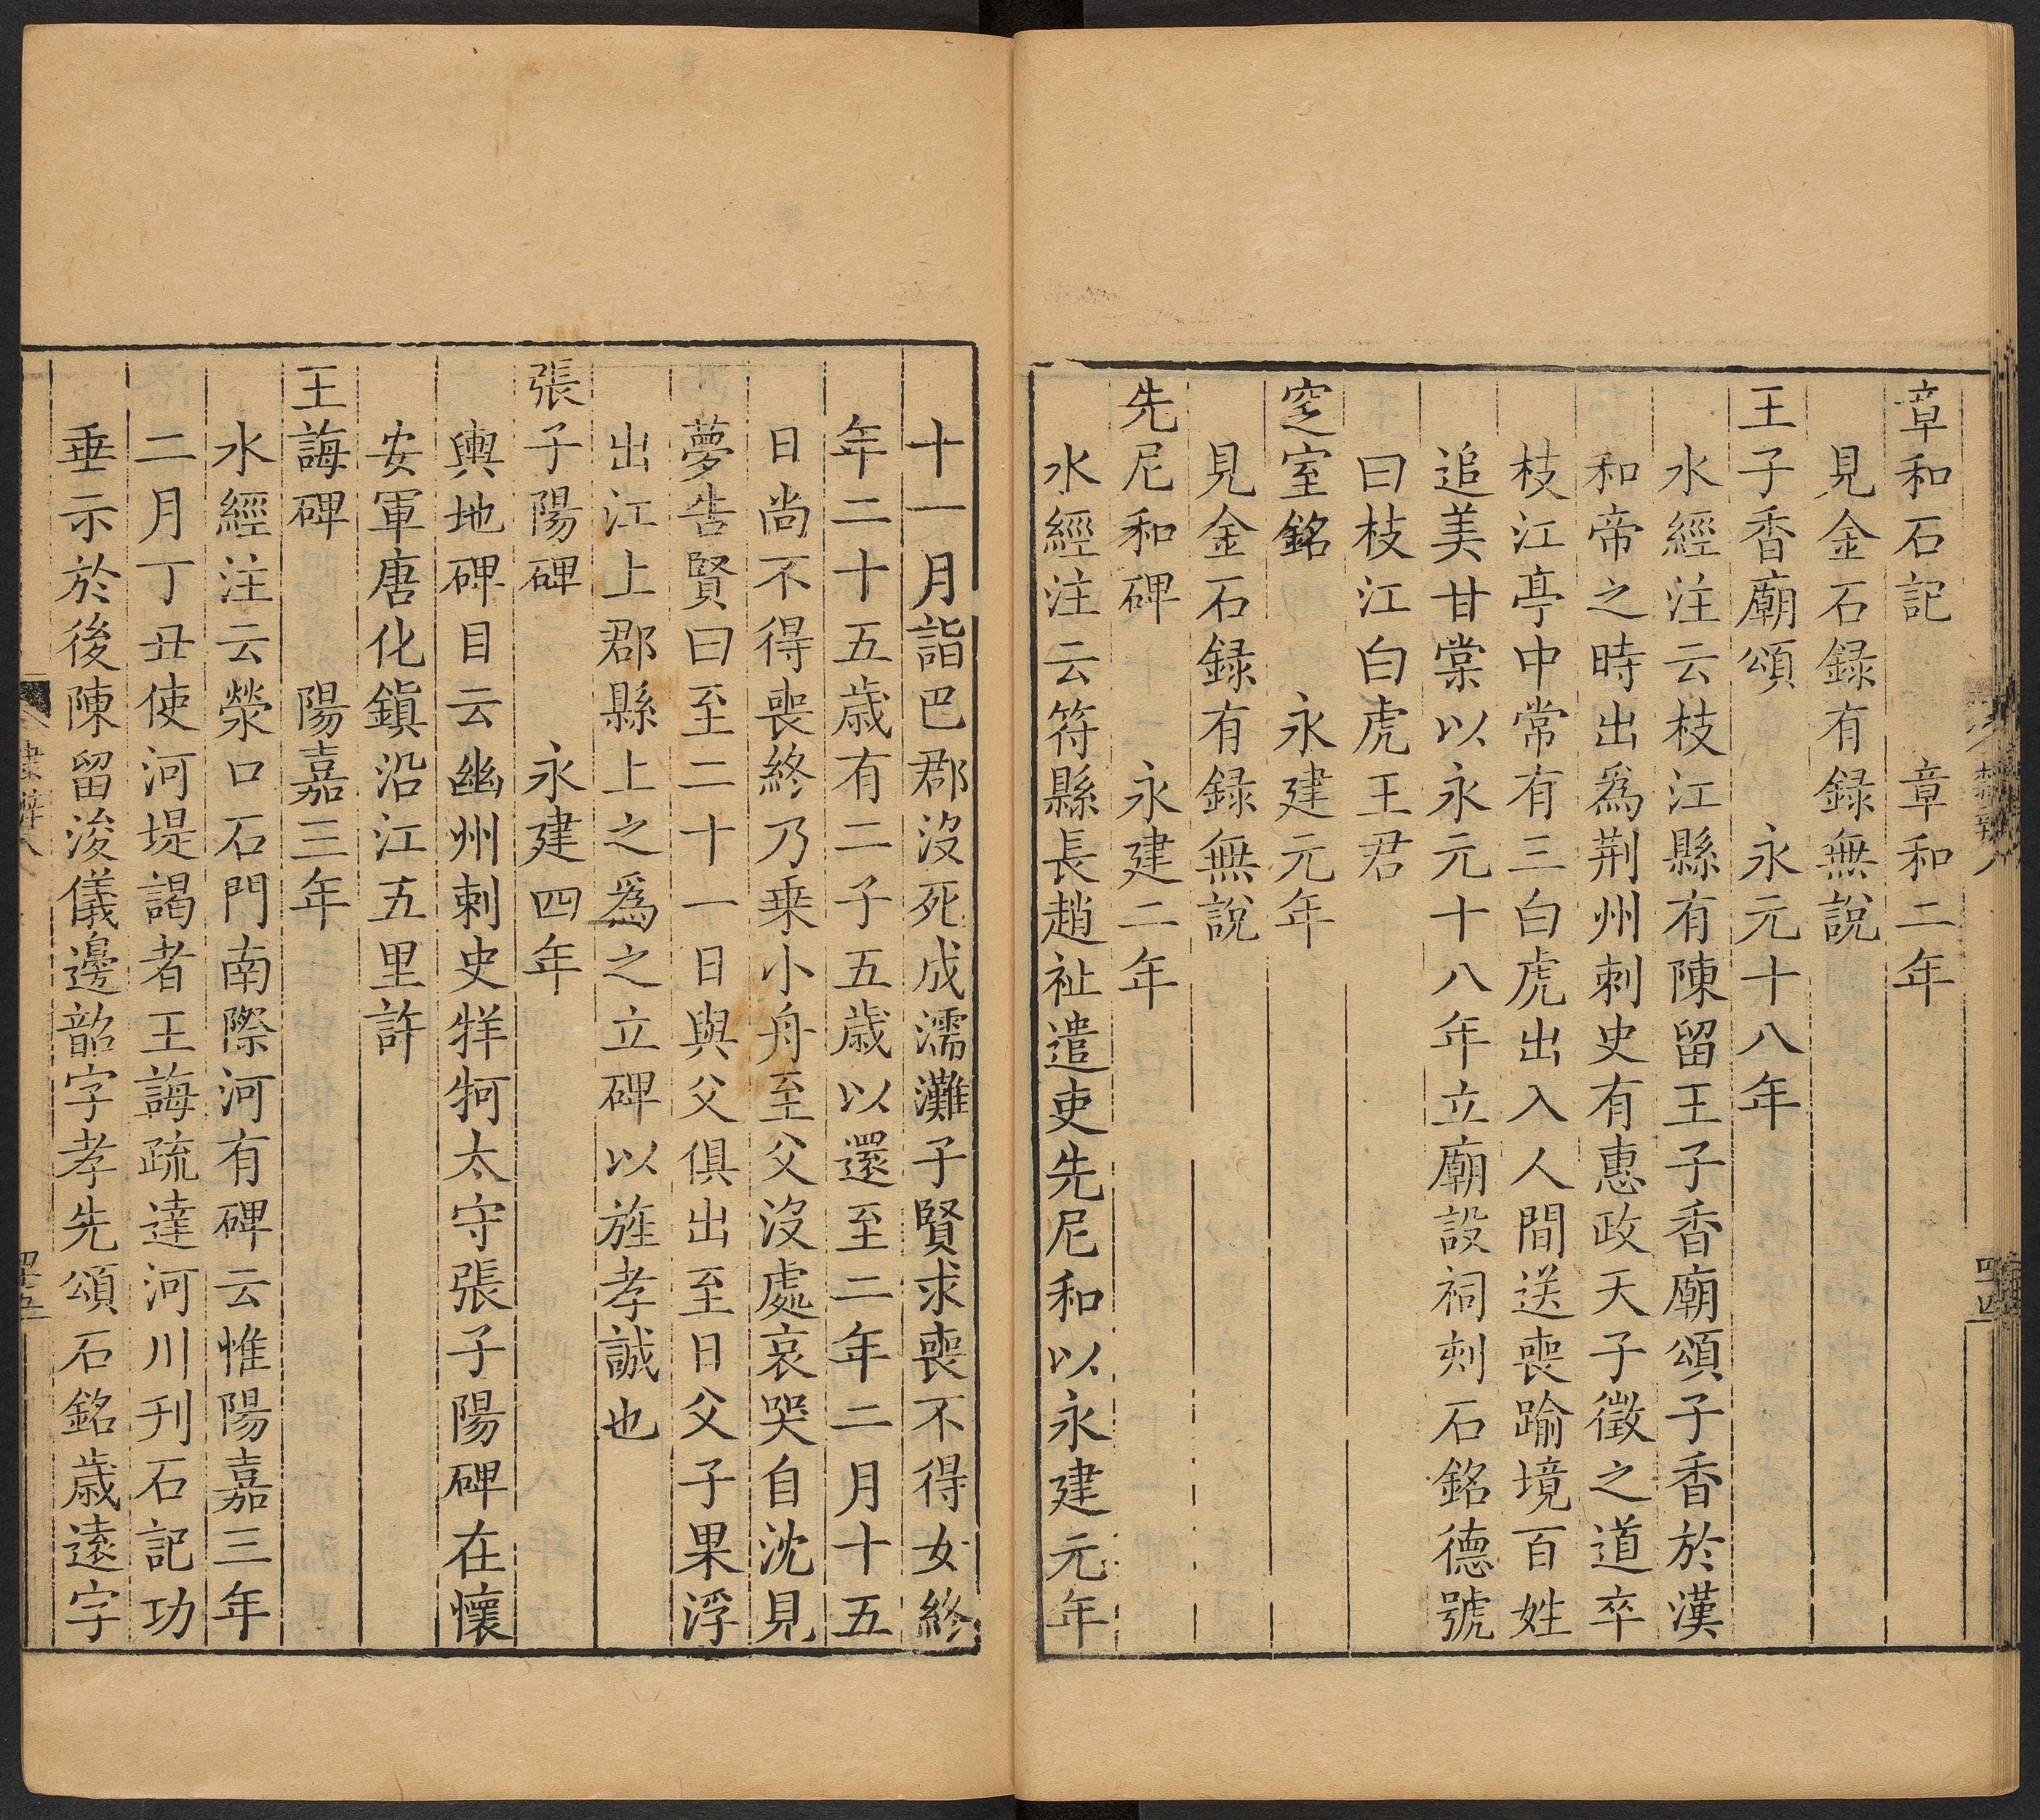 章和石記　章和二年
見金石録有録無說
王子香廟頌　永元十八年
水經注云枝江縣有陳留王子香廟頌子香於漢
和帝之時出爲荆州刺史有惠政天子徵之道卒
枝江亭中常有三白虎出入人間送喪踰境百姓
追美甘棠以永元十八年立廟設祠刻石銘德號
曰枝江白虎王君
窆室銘　永建元年
見金石録有録無說
先尼和碑　永建二年
水經注云符縣長趙祉遣吏先尼和以永建元年
十一月詣巴郡沒死成濡灘子賢求喪不得女終
年二十五歲有二子五歲以還至二年二月十五
日尚不得喪終乃乗小舟至父沒處哀哭自沈見
夢告賢曰至二十一日與父俱出至日父子果浮
出江上郡縣上之爲之立碑以旌孝誠也
張子陽碑　永建四年
輿地碑目云幽州刺史牂牁太守張子陽碑在懷
安軍唐化鎭沿江五里許
王誨碑　陽嘉三年
水經注云滎口石門南際河有碑云惟陽嘉三年
二月丁丑使河堤謁者王誨疏達河川刋石記功
垂示於後陳留浚儀邊韶字孝先頌石銘歲遠字
四五